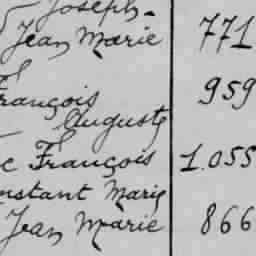 Joseph-
Jean Marie 771
François 959
Auguste
François 1.055
Constant Marie
Jean Marie 866